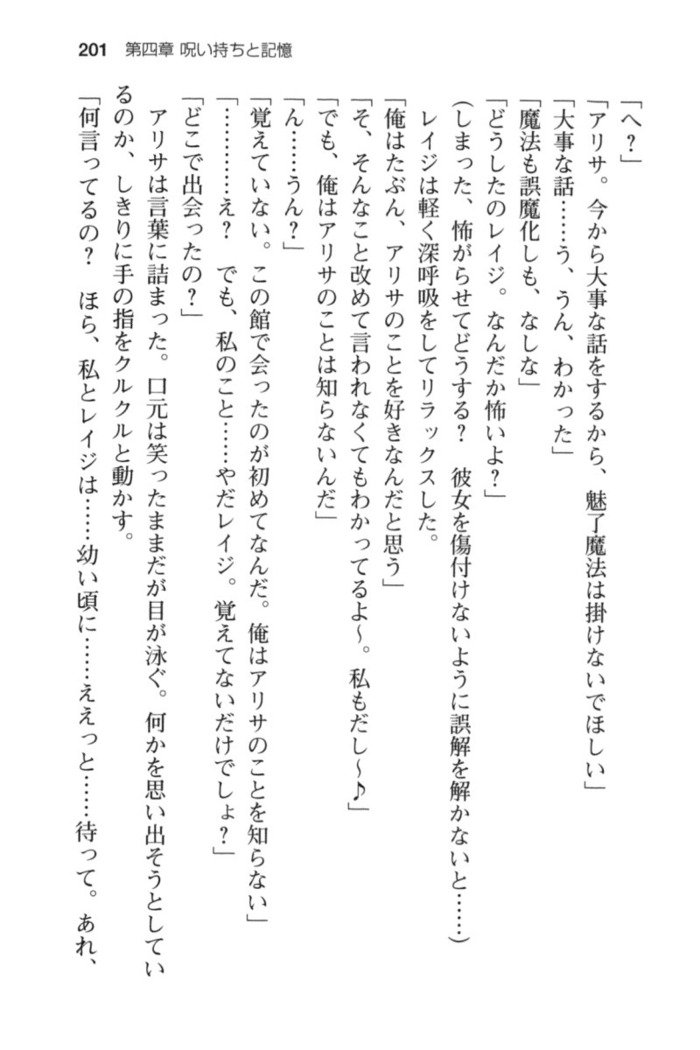 201 第四章 呪い持ちと記憶
「へ?」
「アリサ。今から大事な話をするから、魅了魔法は掛けないでほしい」
「大事な話……う、うん、わかった」
「魔法も誤魔化しも、なしな」
「どうしたのレイジ。なんだか怖いよ?」
(しまった、怖がらせてどうする? 彼女を傷付けないように誤解を解かないと……)
レイジは軽く深呼吸をしてリラックスした。
「俺はたぶん、アリサのことを好きなんだと思う」
「そ、そんなこと改めて言われなくてもわかってるよ〜。私もだし〜♪」
「でも、俺はアリサのことは知らないんだ」
「ん……うん?」
「覚えていない。この館で会ったのが初めてなんだ。俺はアリサのことを知らない」
「…………え? でも、私のこと……やだレイジ。覚えてないだけでしょ?」
「どこで出会ったの?」
アリサは言葉に詰まった。口元は笑ったままだが目が泳ぐ。何かを思い出そうとしてい
るのか、しきりに手の指をクルクルと動かす。
「何言ってるの? ほら、私とレイジは……幼い頃に……ええっと……待って。あれ、